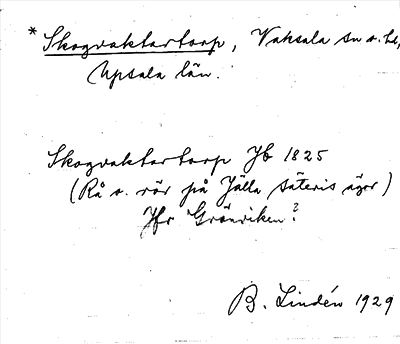 * Skogvaktartorp, Vaksala sn o. hd,
Upsala län.
Skogvaktartorp Jb 1825
(Rå o. rör på Jälla säteris ägor)
Jfr Gränviken?
B. Lindén 1929